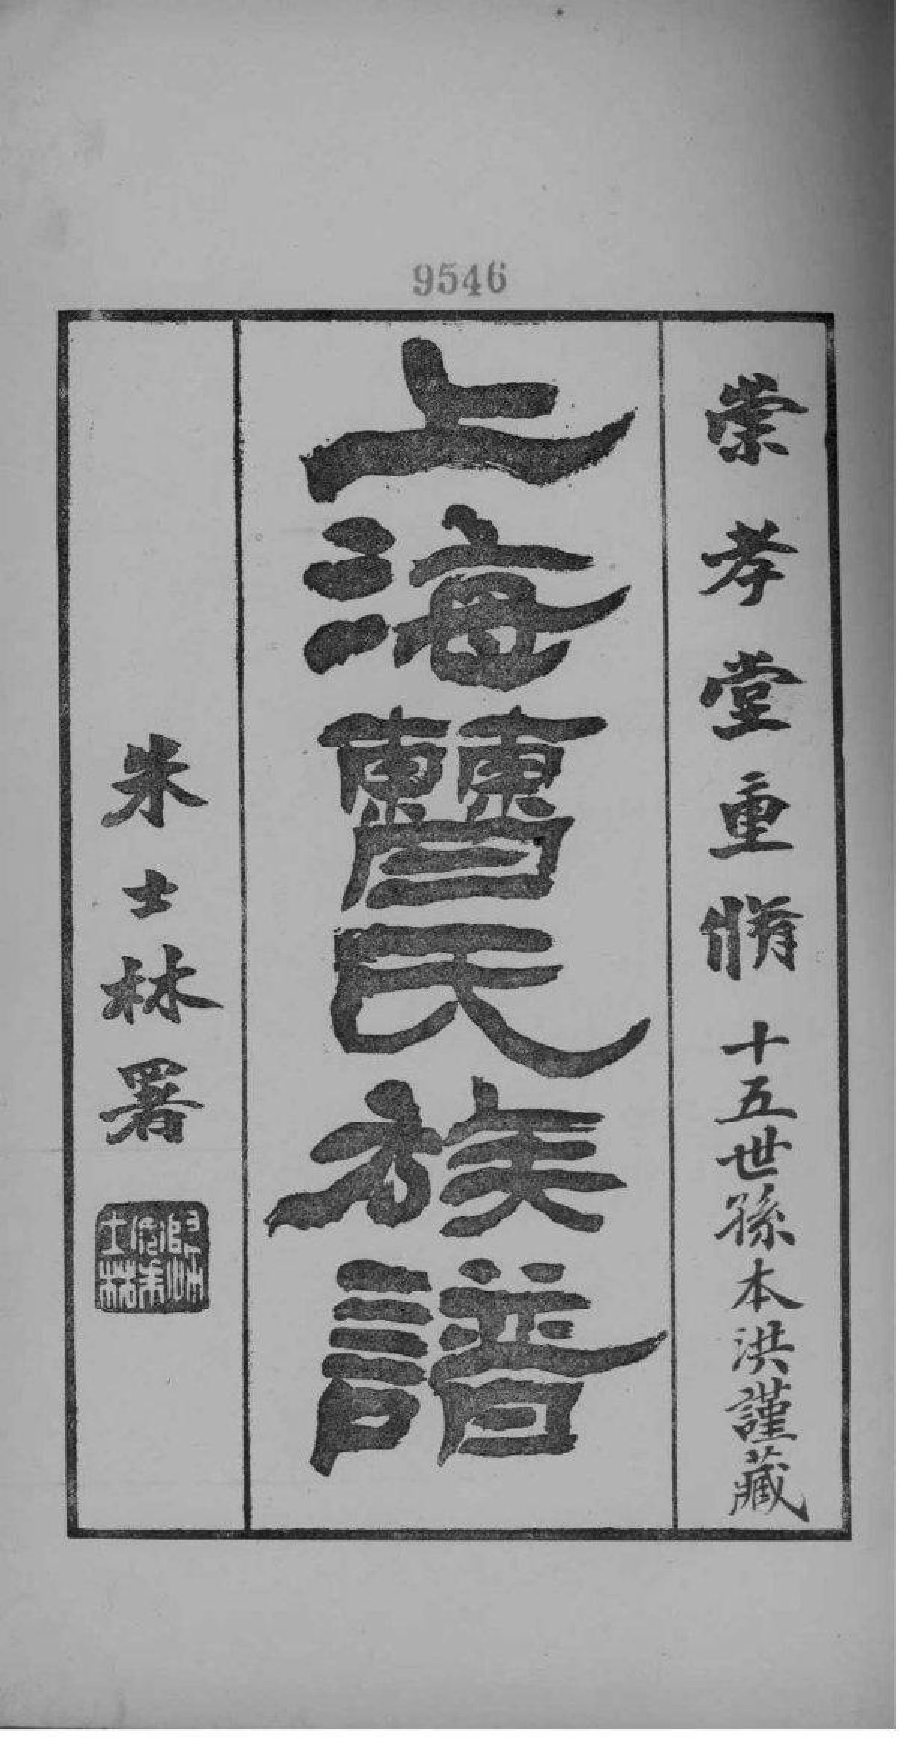 9546
崇孝堂重脩 十五世孫本洪謹藏
上海曹氏族譜
朱士林署